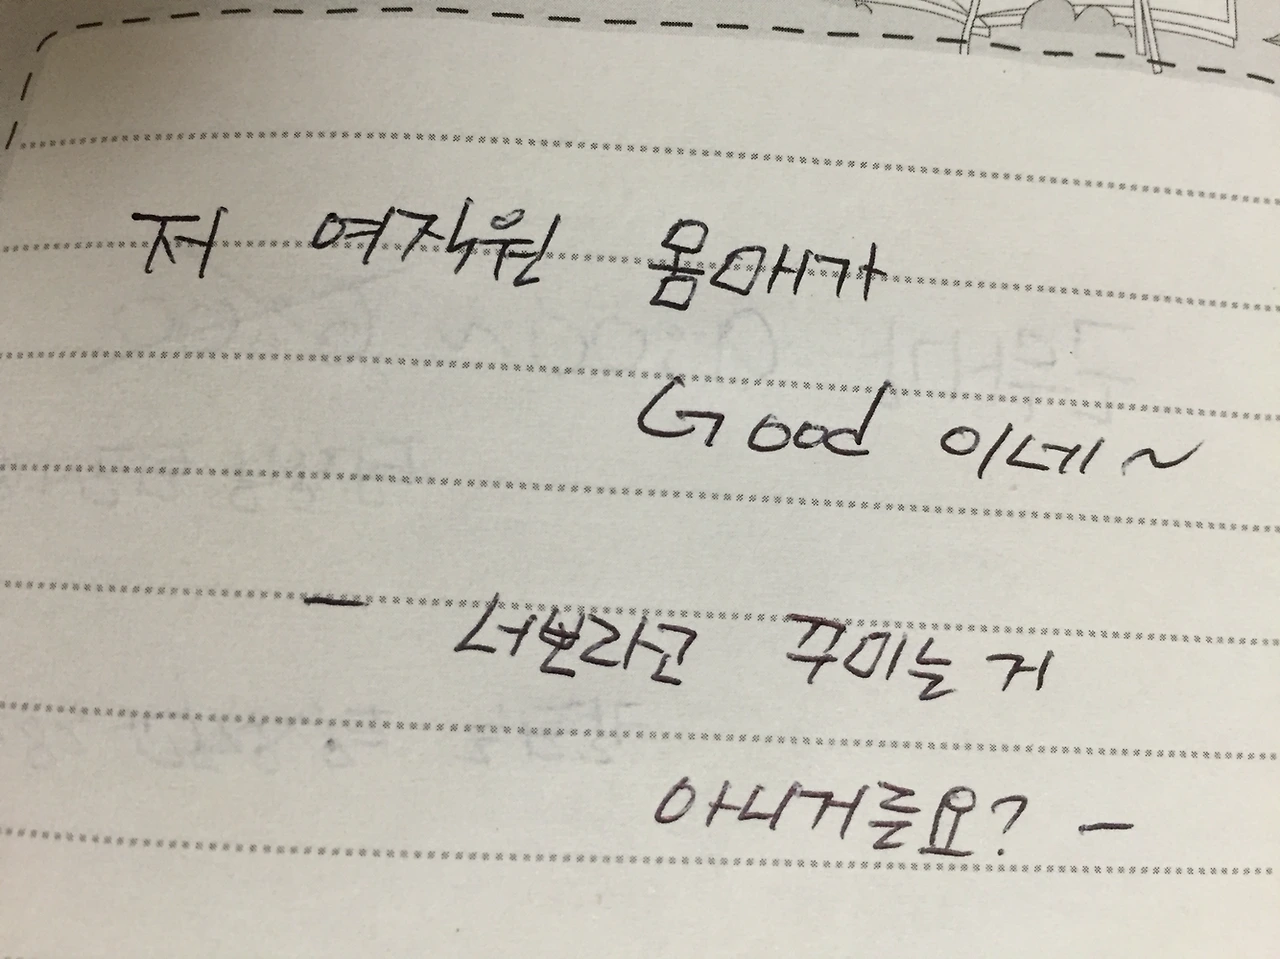 저 여직원 몸매가
Good 이네~
- 너보라고 꾸미는 거
아니거든요? -